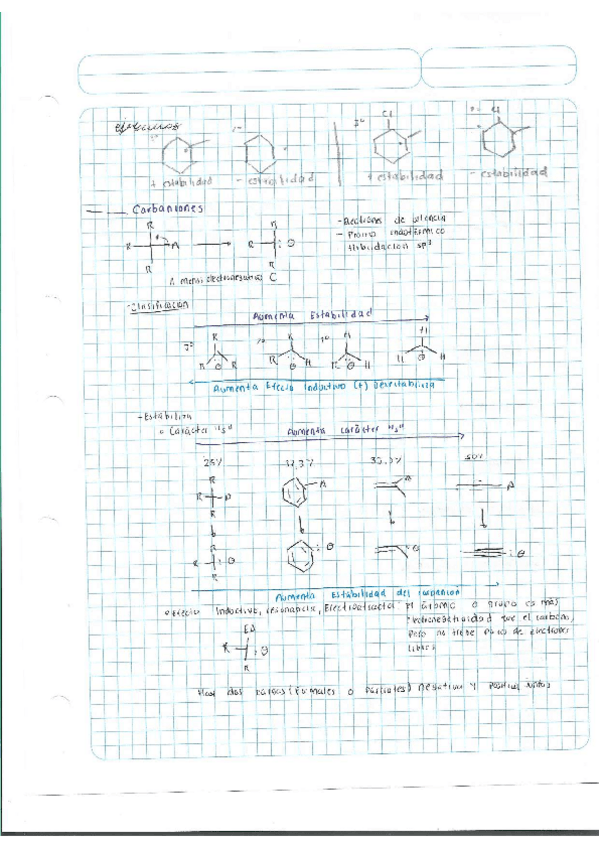 ejercicios
3° 1° 2° Cl 2° Cl
+ estabilidad - estabilidad + estabilidad - estabilidad
Carbaniones
R R
R A R :⊖
R R
A menos electronegativo C
- Electrones de valencia
- Hibridación sp³
- Clasificación
Aumenta Estabilidad
3° 2° 1°
R R R H
R R R H R H H H
Aumenta Efecto Inductivo (+) Desestabiliza
- Estabiliza
o Carácter "s"
Aumenta carácter "s"
25% 33,3% 33,3% 50%
R
R A A A A
R
R
R :⊖ :⊖ ⊖ :⊖
R
Aumenta Estabilidad del carbanión
o Efecto Inductivo, resonancia, o grupo es más
que el carbono,
pero no tiene pares de electrones
libres
R :⊖
Hay dos cargas (formales o parciales) negativa y positiva juntas